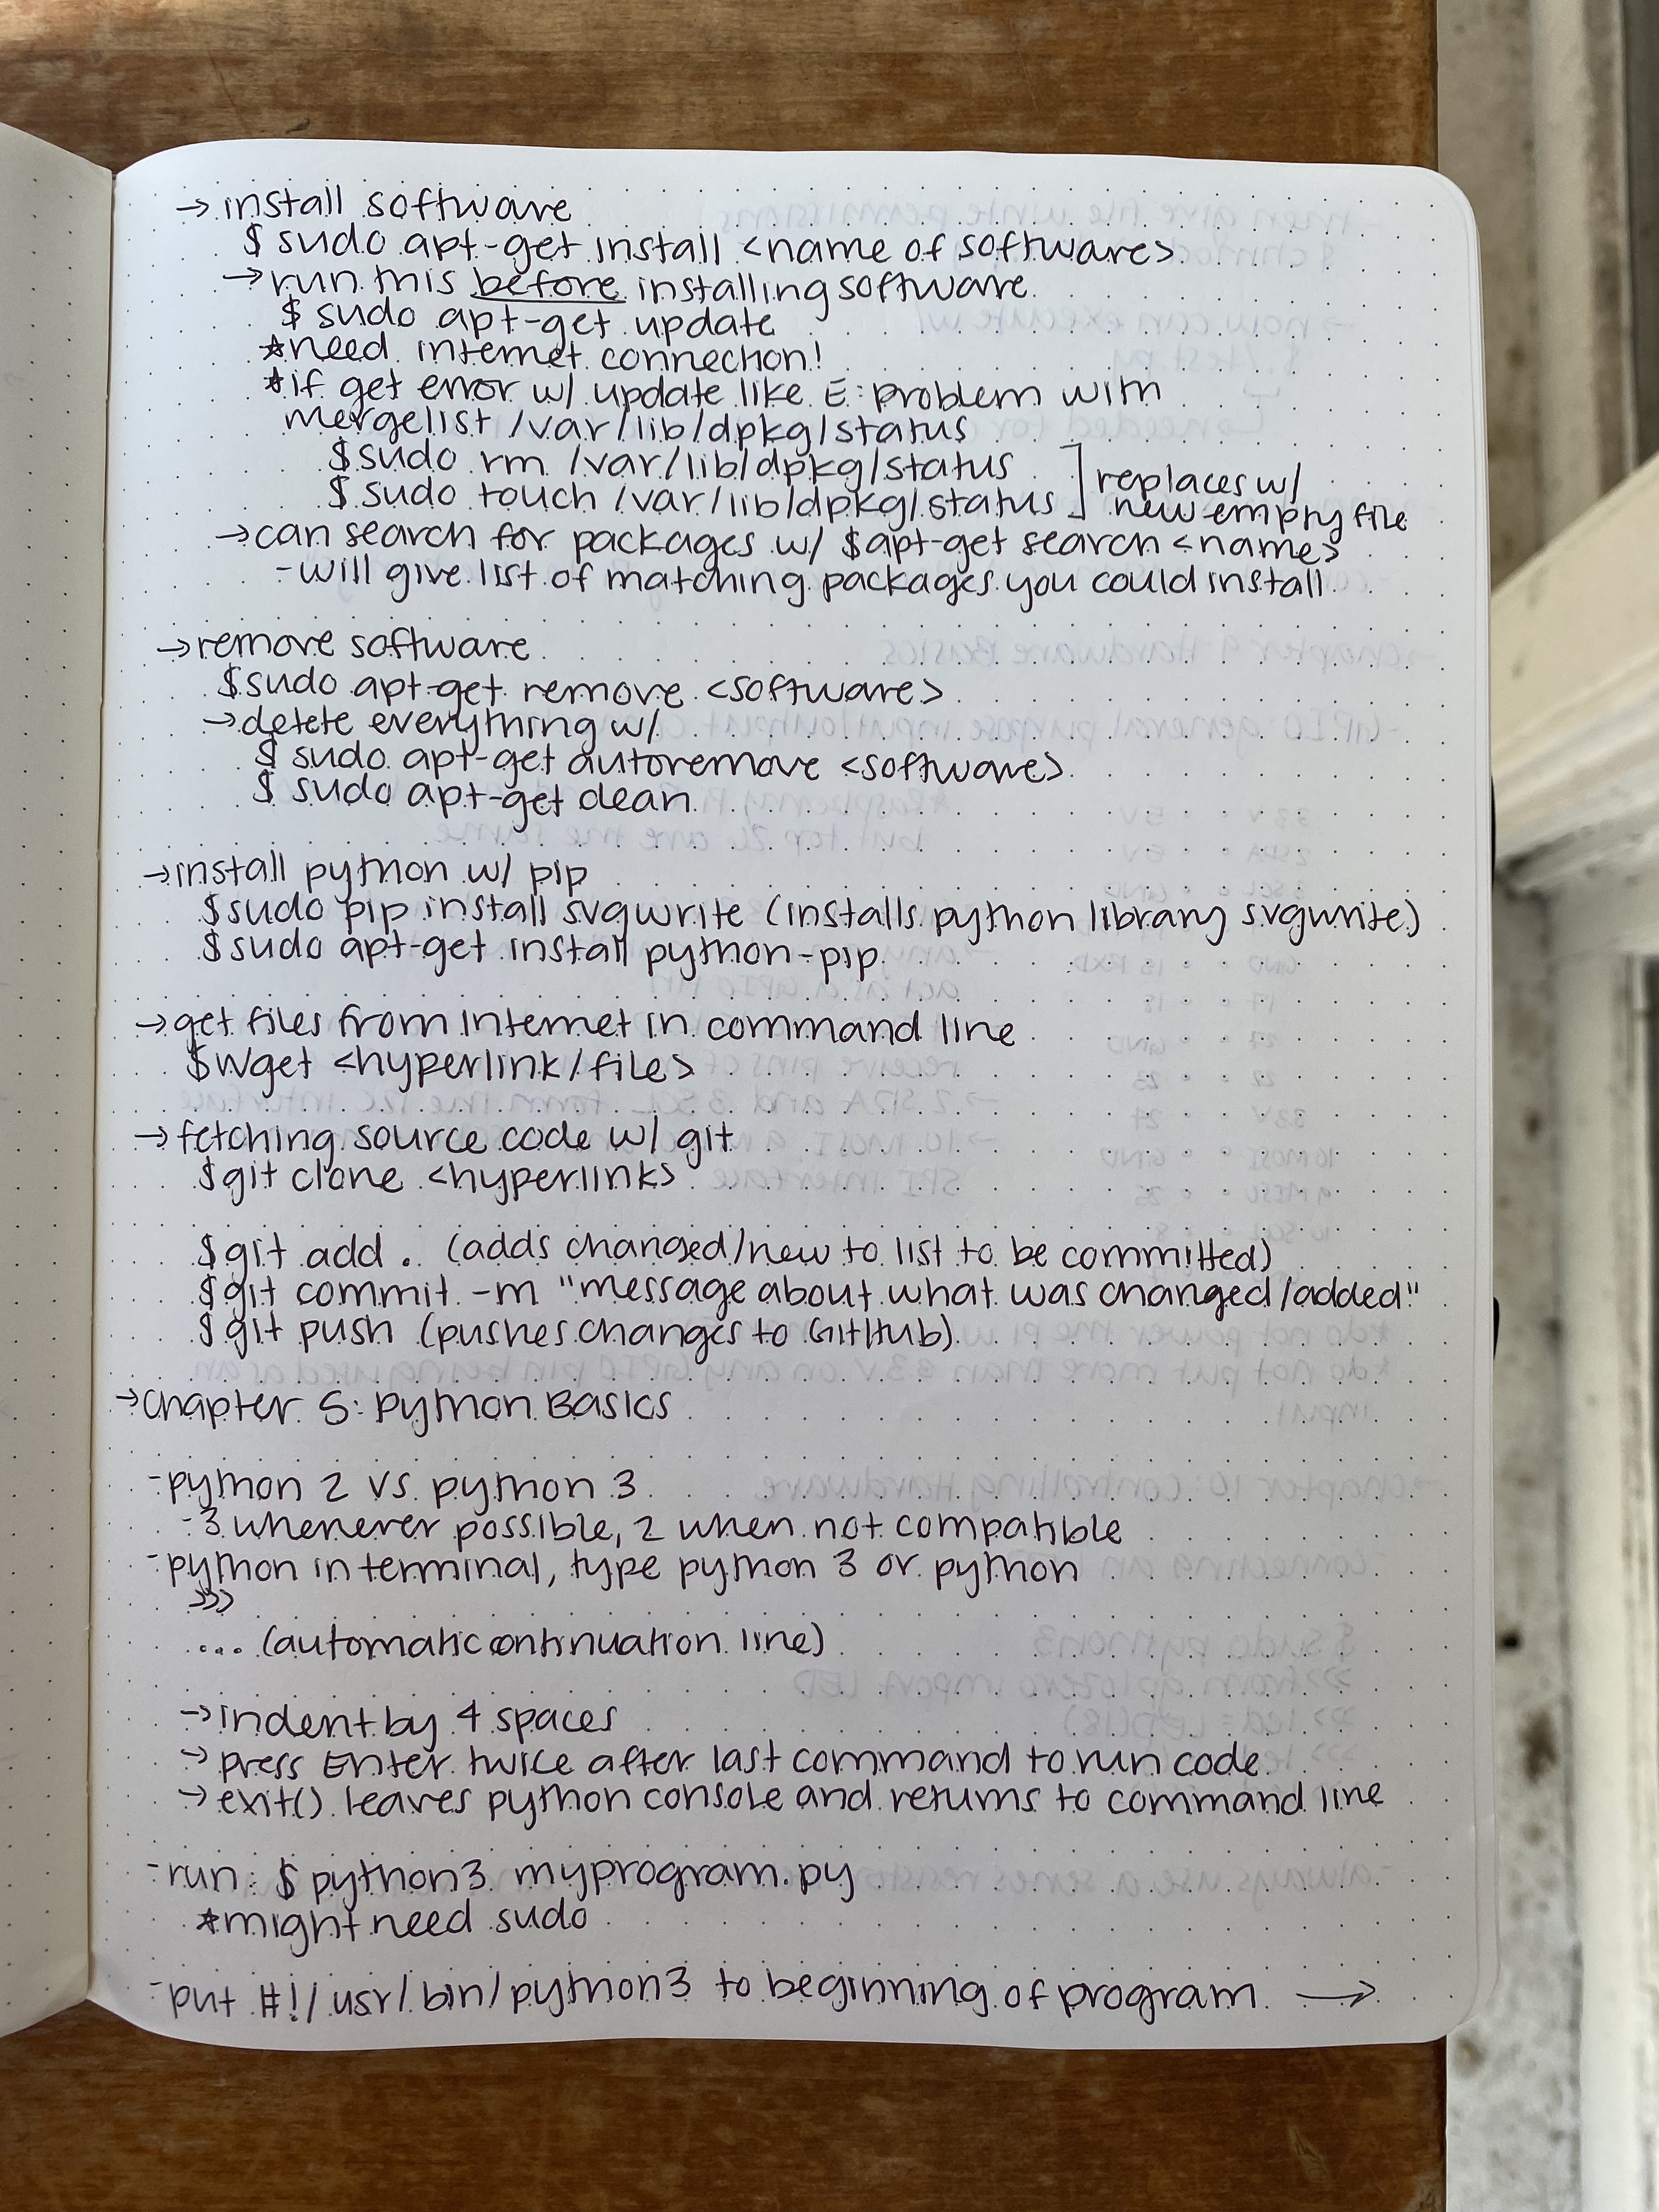 → install software
$ sudo apt-get install <name of software>
→ run this before installing software
$ sudo apt-get update
*need internet connection!
*if get error w/ update like E: Problem with
mergelist /var/lib/dpkg/status
$ sudo rm /var/lib/dpkg/status
$ sudo touch /var/lib/dpkg/status ] replaces w/
new empty file
→ can search for packages w/ $apt-get search <name>
- will give list of matching packages you could install
→ remove software
$ sudo apt-get remove <software>
→ delete everything w/
$ sudo apt-get autoremove <software>
$ sudo apt-get clean
→ install python w/ pip
$ sudo pip install svgwrite (installs python library svgwrite)
$ sudo apt-get install python-pip
→ get files from internet in command line
$ wget <hyperlink/file>
→ fetching source code w/ git
$ git clone <hyperlink>
$ git add . (adds changed/new to list to be committed)
$ git commit -m "message about what was changed/added"
$ git push (pushes changes to GitHub)
→ Chapter 5: Python Basics
- python 2 vs. python 3
- 3 whenever possible, 2 when not compatible
- python in terminal, type python 3 or python
>>>
... (automatic continuation line)
→ indent by 4 spaces
→ press Enter twice after last command to run code
→ exit() leaves python console and returns to command line
- run: $ python3 myprogram.py
*might need sudo
- put #!/usr/bin/python3 to beginning of program →